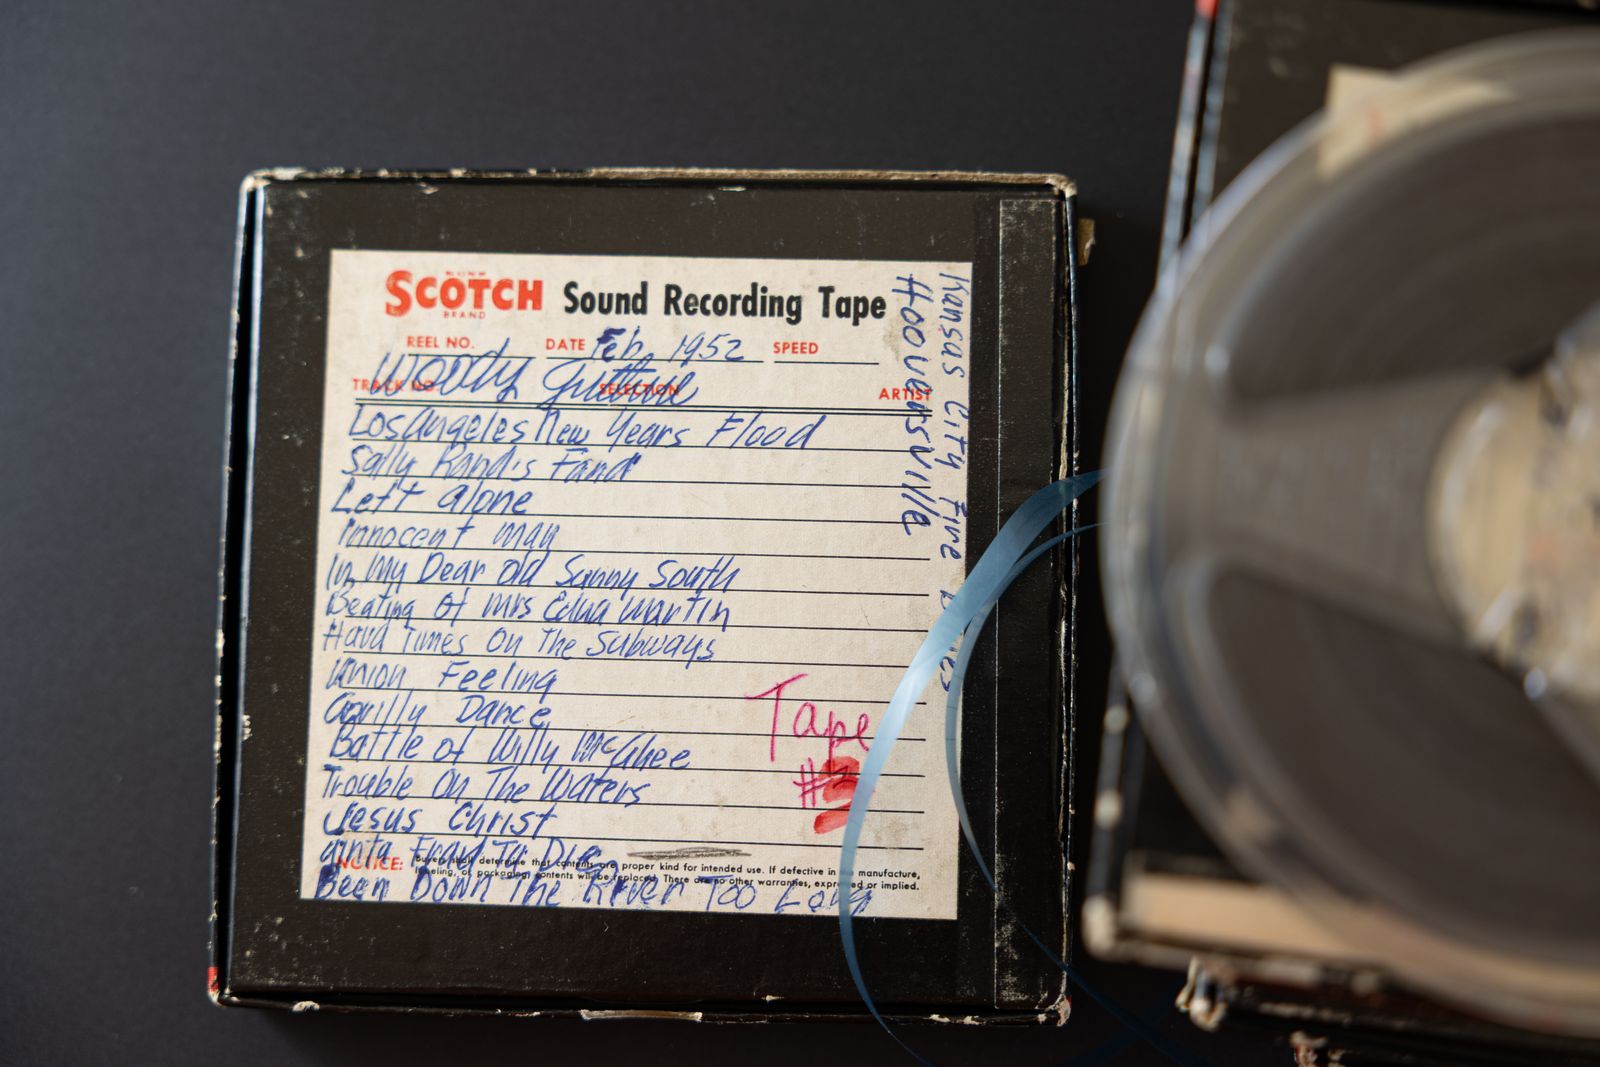 SCOTCH BRAND Sound Recording Tape
REEL NO. DATE Feb, 1952 SPEED
Woody Guthrie
TRACK NO. SELECTION ARTIST
Los Angeles New Years Flood
Sally Rand's Fand
Left alone
Innocent man
In My Dear old Sunny South
Beating Of Mrs Edna Martin
Hard Times On The Subways
Union Feeling
Gorilly Dance
Battle of Willy McGhee
Trouble On The Waters
Jesus Christ
Fraid To Die
NOTICE: Buyers shall determine that contents are proper kind for intended use. If defective in manufacture,
labeling, or packaging, contents will be replaced. There are no other warranties, expressed or implied.
Been Down The River Too Long
Tape
#3
Kansas City Fire
Hooversville